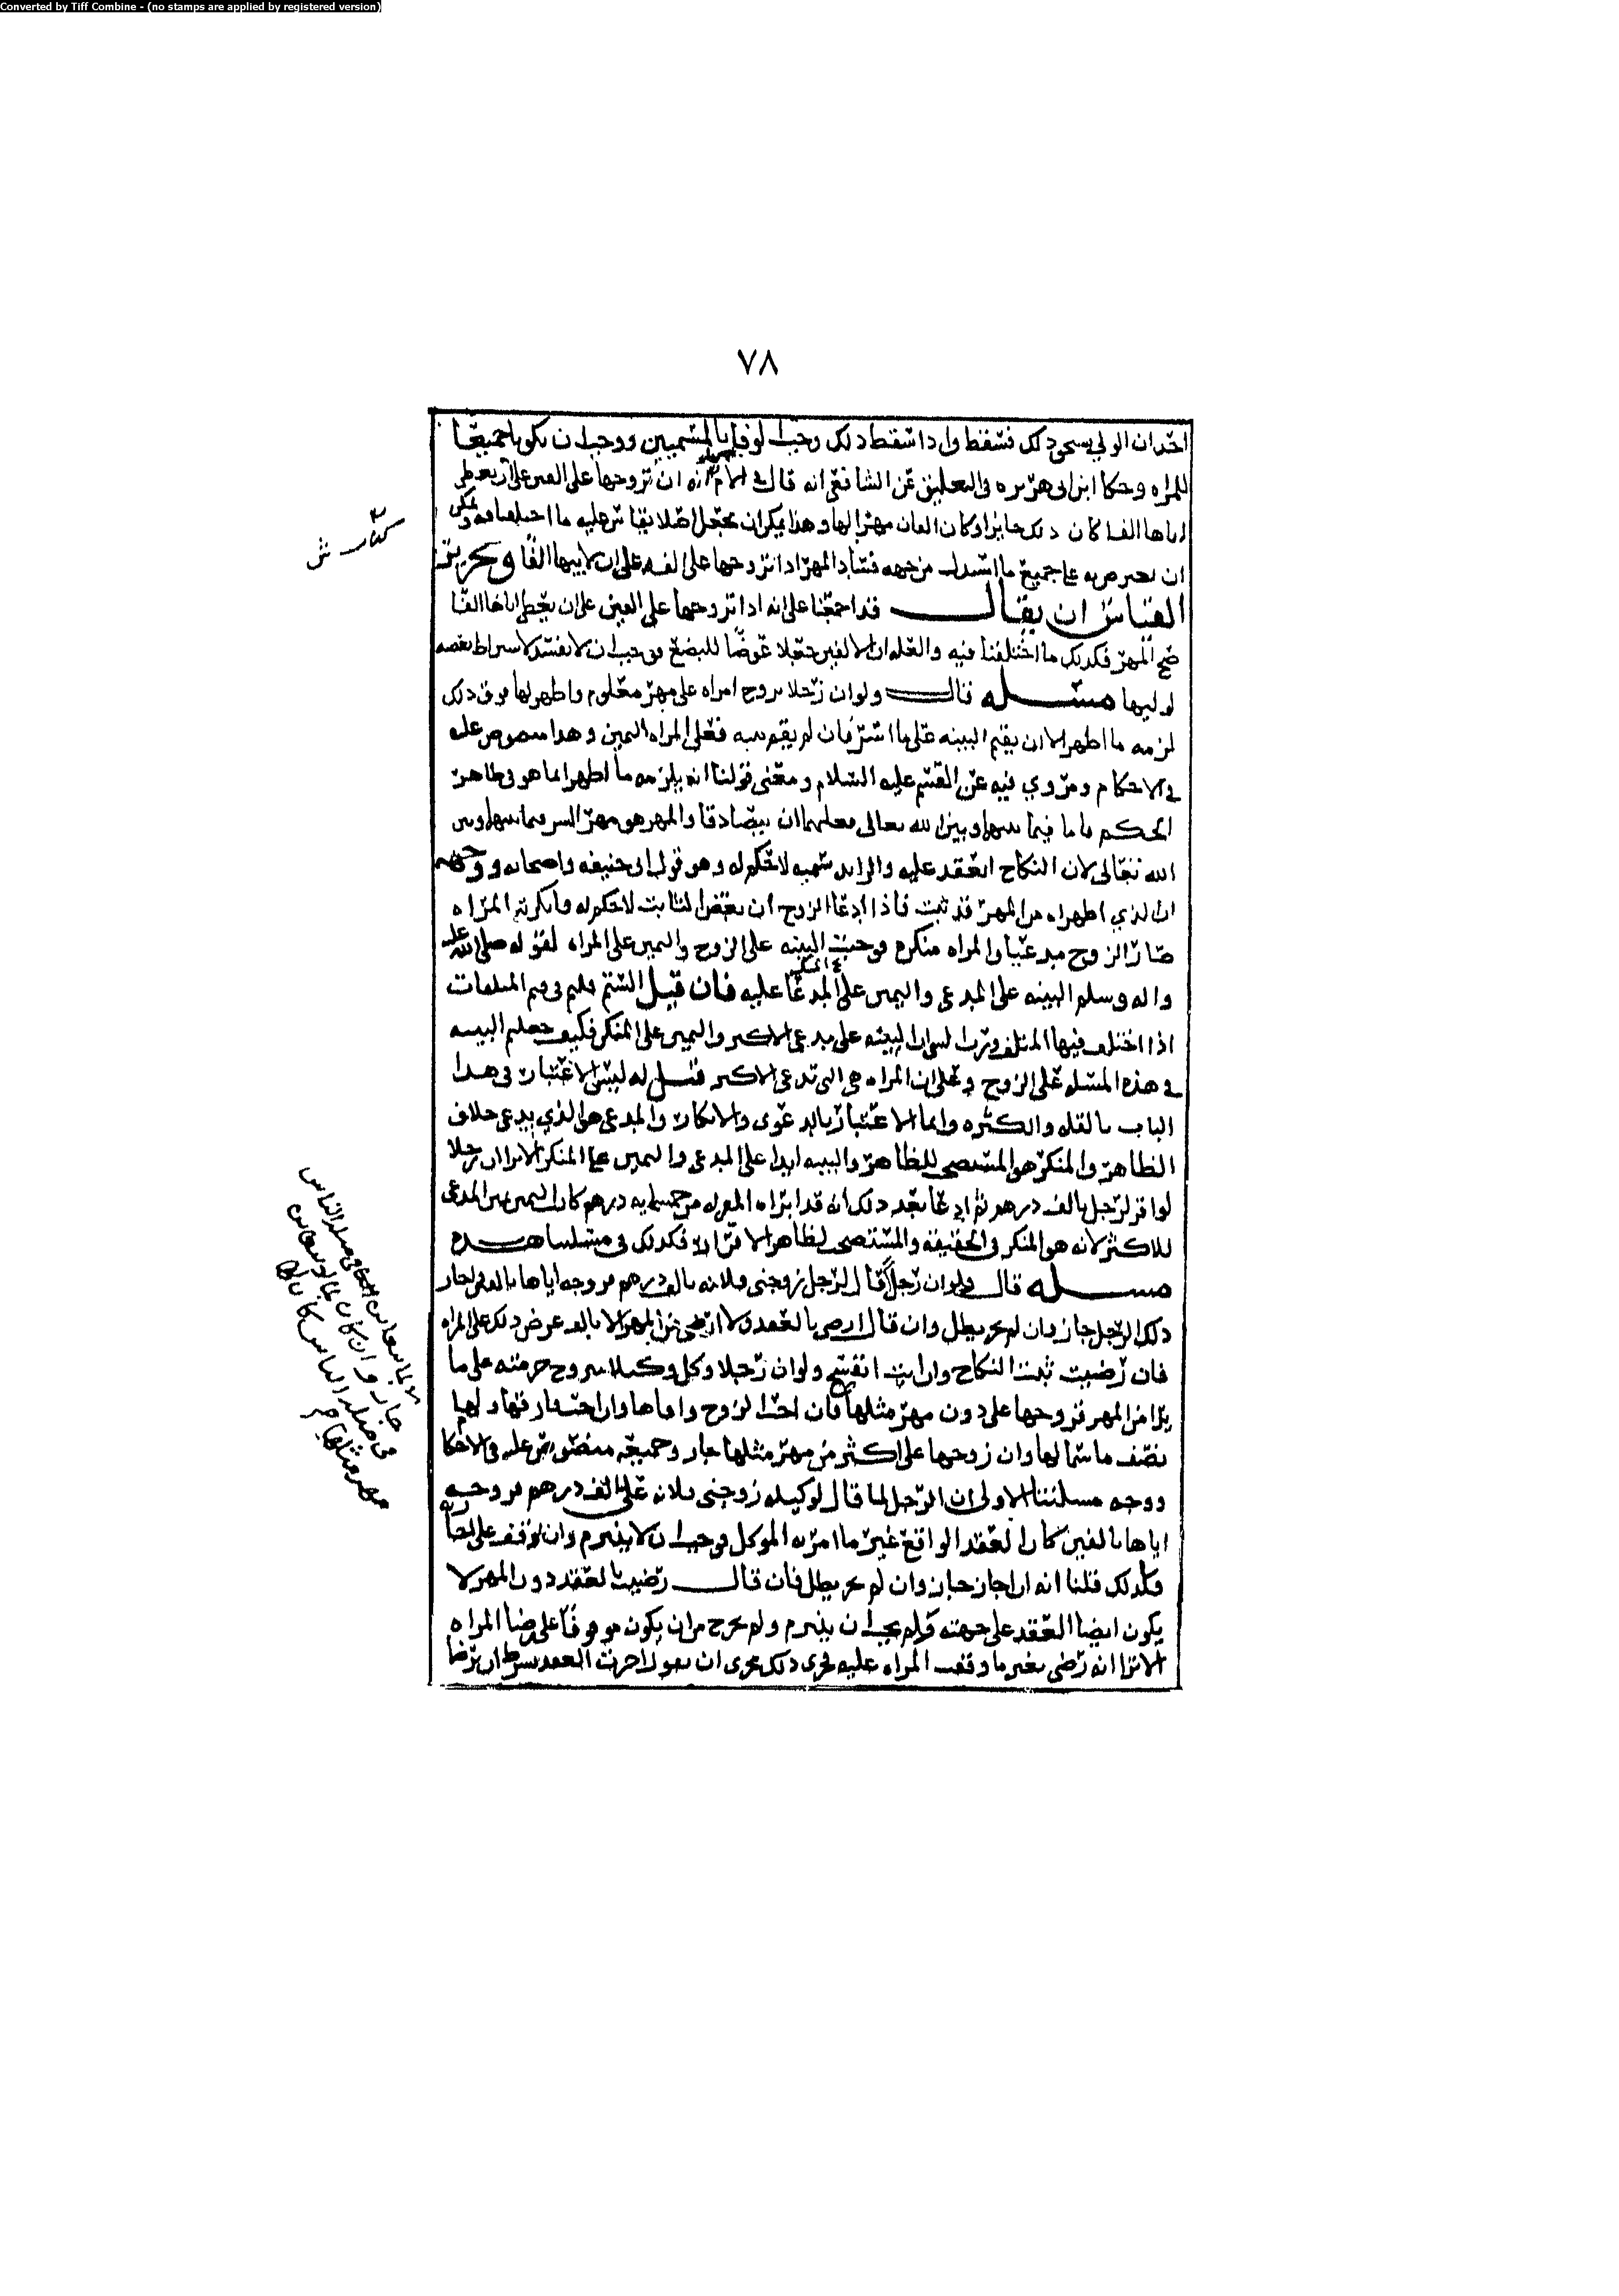 Converted by Tiff Combine - (no stamps are applied by registered version)
٧٨
احد ان الولي يستحق ذلك فسقط واذا سقط ذلك وجب الوفا بالمسميين ووجب ان يكونا جميعا
للمراه وحكا ابن ابي هريره في التعليق عن الشافعي انه قال في الام انه ان تزوجها على الفين على ان يعطي
اباها الفا كان ذلك جايزا وكان الفان مهرا لها وهذا يمكن ان يجعل اصلا يقاس عليه ما اختلفنا فيه ويمكن
ان يعترض به على جميع ما استدل من جهه فساد المهر اذا تزوجها على الف على ان لابيها الفا وتحرير
القياس ان يقال قد اجمعنا على انه اذا تزوجها على الفين على ان يعطي اباها الفا
صح المهر فكذلك ما اختلفنا فيه والعله ان الالفين جعلا عوضا للبضع فوجب ان لا يفسد لاشتراط بعضه
لوليها مسئله قال ولو ان رجلا تزوج امراه على مهر معلوم واظهر لها فوق ذلك
لزمه ما اظهر الا ان يقيم البينه على ما اسر فان لم يقم بينه فعلى المراه اليمين وهذا منصوص عليه
في الاحكام ومروي فيه عن القسم عليه السلام ومعنى قولنا انه يلزمه ما اظهر انما هو في ظاهر
الحكم فاما فيما بينهما وبين الله تعالى فعليهما ان يتصادقا والمهر هو مهر السر فيما بينهما وبين
الله تعالى لان النكاح انعقد عليه والزايد تسميه لا حكم له وهو قول ابي حنيفه واصحابه ووجهه
ان الذي اظهراه من المهر قد ثبت فاذا ادعا الزوج ان بعض الثابت لا حكم له وانكرته المراه
صار الزوج مدعيا والمراه منكره فوجبت البينه على الزوج واليمين على المراه لقوله صلى الله عليه
واله وسلم البينه على المدعي واليمين على المدعا عليه فان قيل الستم قلتم في قيم المتلفات
اذا اختلف فيها المتلف ورب الشي ان البينه على مدعي الاكثر واليمين على المنكر فكيف جعلتم البينه
في هذه المسئله على الزوج وعلى ان المراه هي التي تدعي الاكثر قيل له ليس الاعتبار في هذا
الباب بالقله والكثره وانما الاعتبار بالدعوى والانكار والمدعي هو الذي يدعي خلاف
الظاهر والمنكر هو المستصحب للظاهر والبينه ابدا على المدعي واليمين على المنكر الا ترا ان رجلا
لو اقر لرجل بالف درهم ثم ادعا بعد ذلك انه قد ابراه المقر له من خمسمايه درهم كان اليمين على المدعي
للاكثر لانه هو المنكر في الحقيقه والمستصحب لظاهر الاقرار فكذلك في مسئلتنا هذه
مسئله قال ولو ان رجلا قال لرجل زوجني فلانه بالف درهم فزوجه اياها بالفين اجاز
ذلك الرجل جاز وان لم يجز بطل وان قال ارضى بالعقد ولا ارضى من المهر الا بالف عرض ذلك على المراه
فان رضيت ثبت النكاح وان ابت انفسخ ولو ان رجلا وكل وكيلا يزوج حرمته على ما
يرا من المهر فزوجها على دون مهر مثلها فان احب الزوج وافاها وان احب فارقها ولها
نصف ما سما لها وان زوجها على اكثر من مهر مثلها جاز وجميعه منصوص عليه في الاحكام
ووجه مسئلتنا الاولى ان الرجل لما قال لوكيله زوجني فلانه على الف درهم فزوجه
اياها بالفين كان العقد الواقع غير ما امر به الموكل فوجب ان لا ينبرم وان توقف على اجازته
فلذلك قلنا انه ان اجاز جاز وان لم يجز بطل فان قال رضيت بالعقد دون المهر لا
يكون ايضا العقد على جهته فلم يجب ان ينبرم ولم يخرج من ان يكون موقوفا على رضا المراه
الا ترا انه رضي بغير ما وقفت المراه عليه فجرى ذلك مجرى ان يقول اجزت العقد بشرط ان ترضا